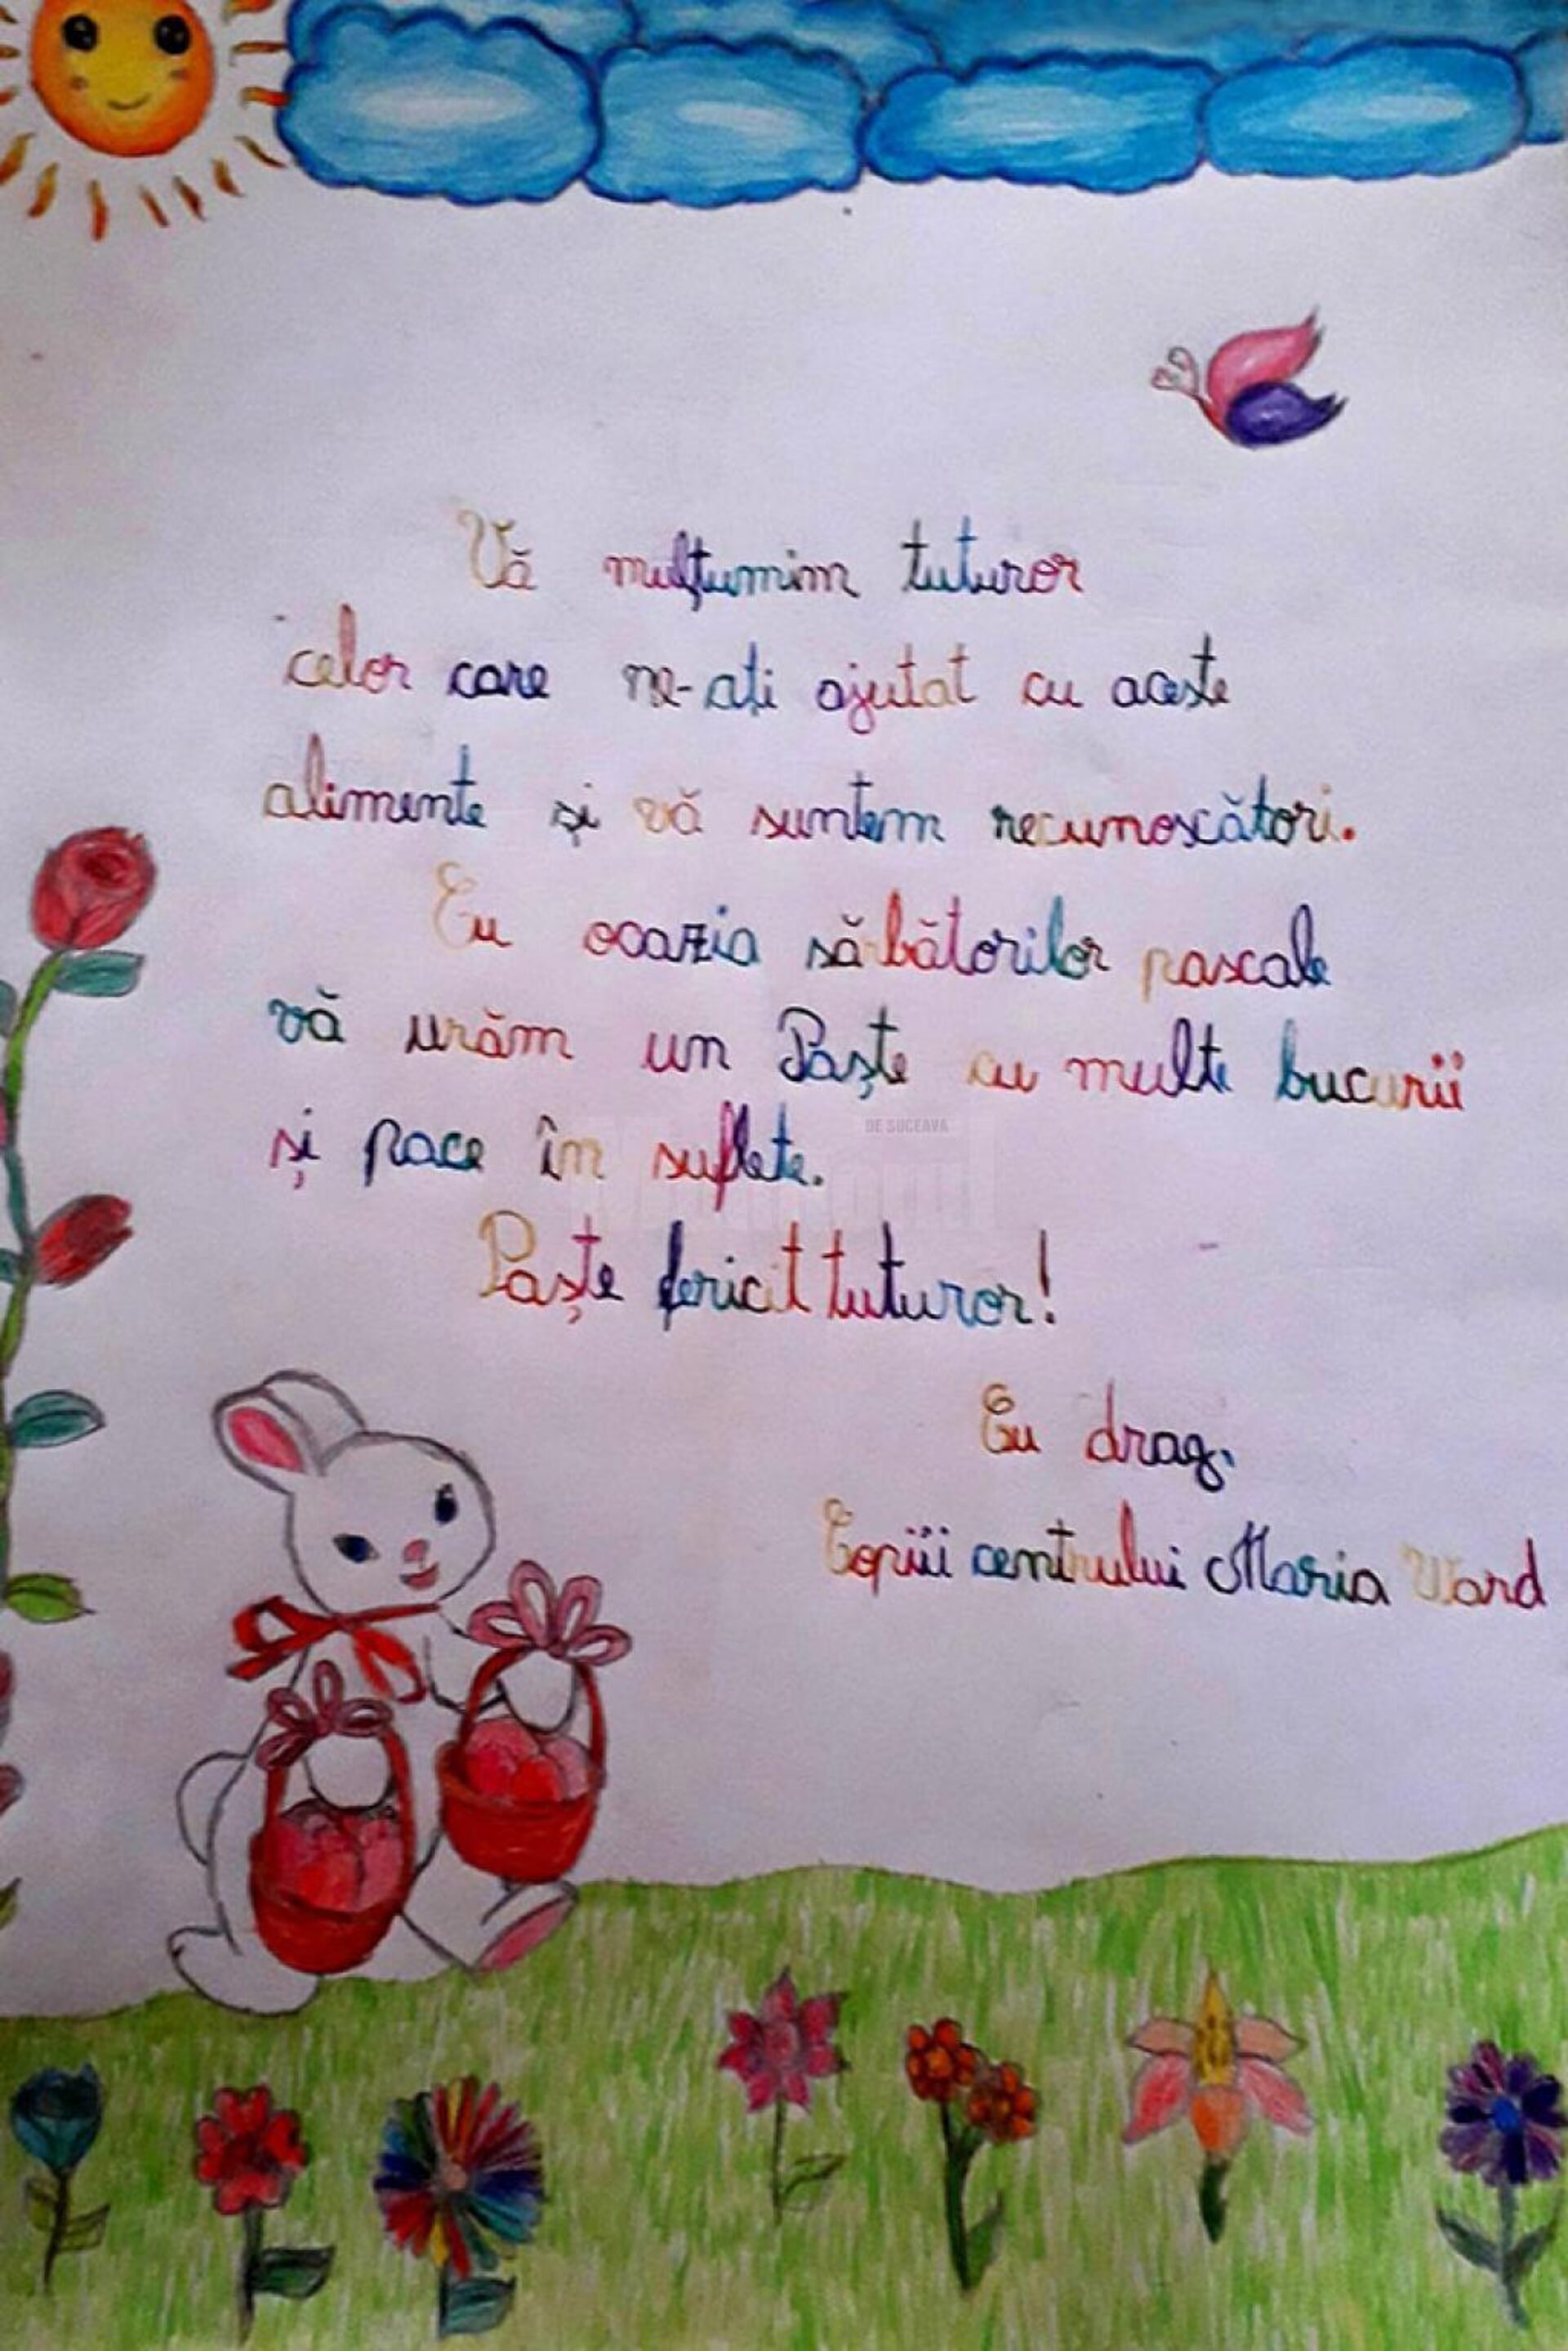 Vă mulțumim tuturor
celor care ne-ați ajutat cu aceste
alimente și vă suntem recunoscători.
Cu ocazia sărbătorilor pascale
vă urăm un Paște cu multe bucurii
și pace în suflete.
DE SUCEAVA
Paște fericit tuturor!
Cu drag,
Copiii centrului Maria Ward